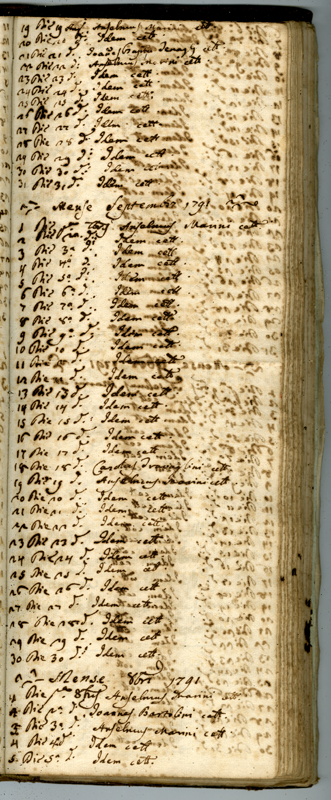 19 Die 19 Anselmus Manni cett
20 Die 20 d.º Idem cett
21 Die 21 d.º cett
22 Die 22 d.º Anselmus Manni cett
23 Die 23 d.º Idem cett
24 Die 24 d.º Idem cett
25 Die 25 d.º Idem cett
26 Die 26 d.º Idem cett
27 Die 27 d.º Idem cett
28 Die 28 d.º Idem cett
29 Die 29 d.º Idem cett
30 Die 30 d.º Idem cett
31 Die 31 d.º Idem cett
Mense September 1791
1 Die Anselmus Manni cett
2 Die 2 d.º Idem cett
3 Die 3ª d.º Idem cett
4 Die 4ª d.º Idem cett
5 Die 5ª d.º Idem cett
6 Die 6ª d.º Idem cett
7 Die 7ª d.º Idem cett
8 Die 8ª d.º Idem cett
9 Die 9ª d.º Idem cett
10 Die 10 d.º Idem cett
11 Die 11 d.º Idem cett
12 Die 12 d.º Idem cett
13 Die 13 d.º Idem cett
14 Die 14 d.º Idem cett
15 Die 15 d.º Idem cett
16 Die 16 d.º Idem cett
17 Die 17 d.º Idem cett
18 Die 18 d.º Carolus cett
19 Die 19 d.º Anselmus Manni cett
20 Die 20 d.º Idem cett
21 Die 21 d.º Idem cett
22 Die 22 d.º Idem cett
23 Die 23 d.º Idem cett
24 Die 24 d.º Idem cett
25 Die 25 d.º Idem cett
26 Die 26 d.º Idem cett
27 Die 27 d.º Idem cett
28 Die 28 d.º Idem cett
29 Die 29 d.º Idem cett
30 Die 30 d.º Idem cett
Mense 8bri 1791
1 Die pª 8bris Anselmus Manni cett
2 Die 2ª d.º Joannes Bartolini cett
3 Die 3ª d.º Anselmus Manni cett
4 Die 4ª d.º Idem cett
5 Die 5ª d.º Idem cett